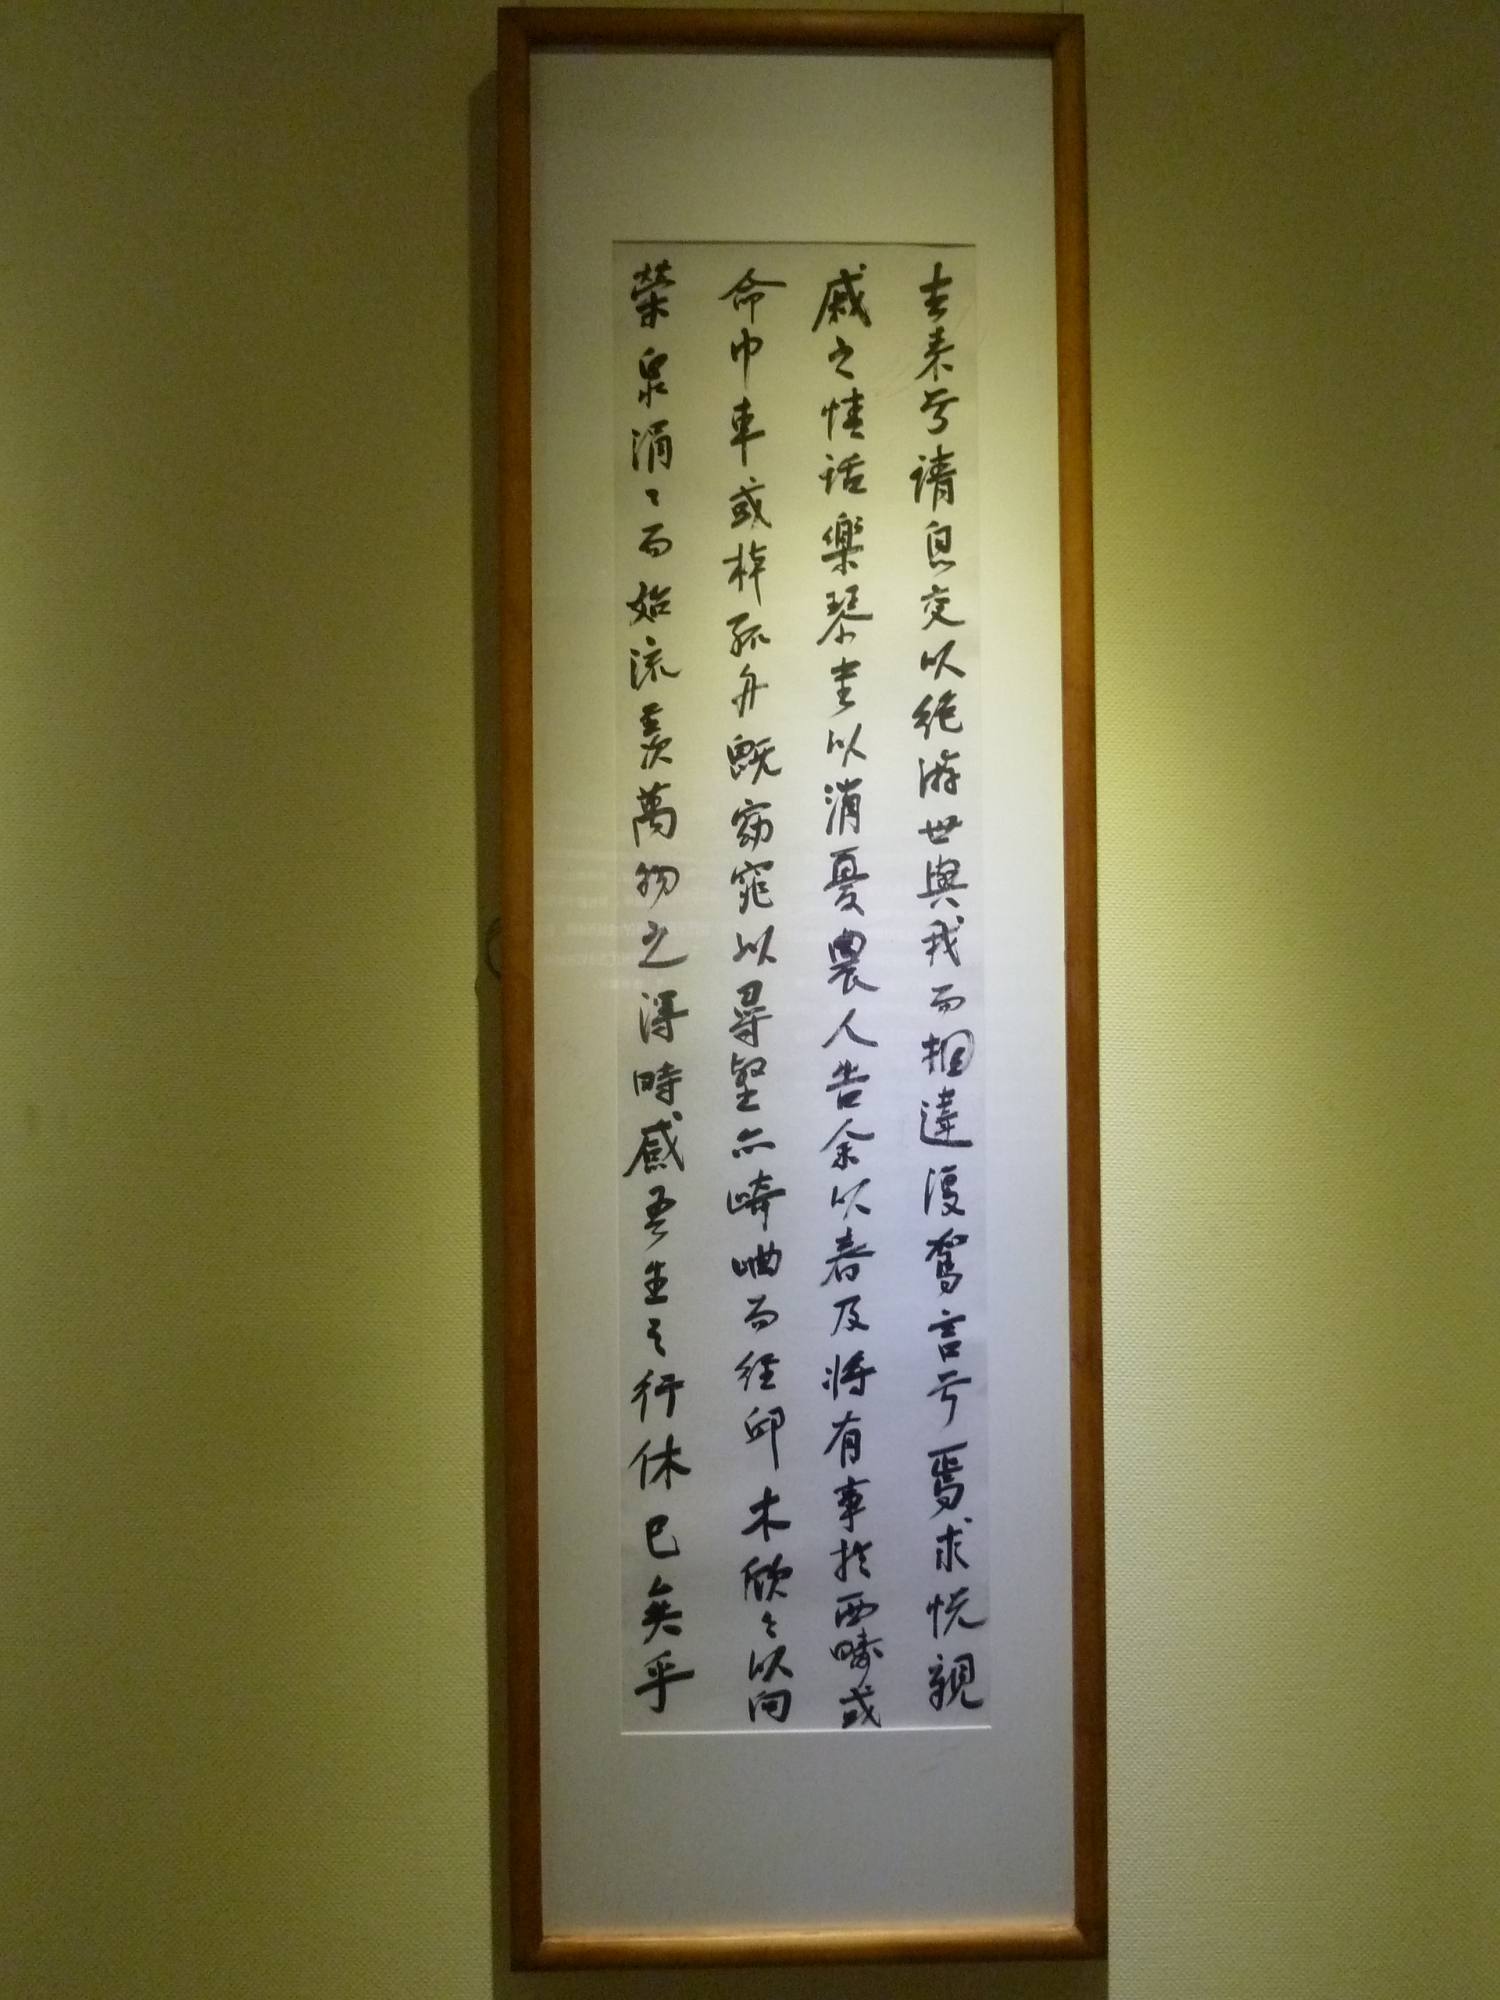 去来兮请息交以绝游世與我而相違復駕言兮焉求悦親
戚之情话樂琴書以消憂農人告余以春及将有事於西畴或
命巾車或棹孤舟既窈窕以尋壑亦崎嶇而经邱木欣々以向
荣泉涓々而始流羡萬物之得時感吾生之行休已矣乎